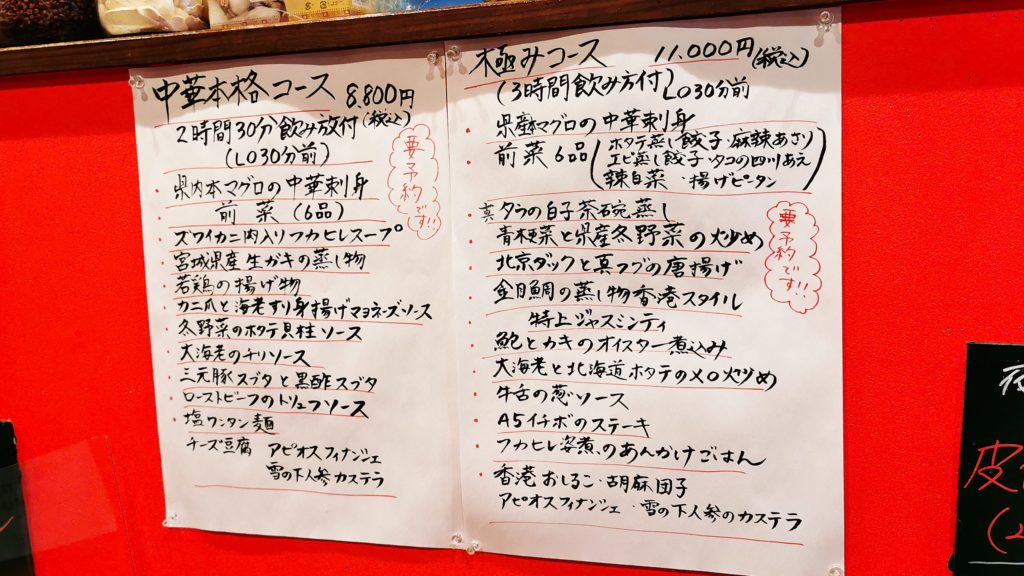 中華本格コース 8.800円
(税込)
2時間30分飲み放付
(LO30分前)
要予約です!!
県内本マグロの中華刺身
前菜(6品)
ズワイカニ肉入りフカヒレスープ
宮城県産生ガキの蒸し物
若鶏の揚げ物
カニ爪と海老すり身揚げマヨネーズソース
冬野菜のホタテ貝柱ソース
大海老のチリソース
三元豚スブタと黒酢スブタ
ローストビーフのトリュフソース
塩ワンタン麺
チーズ豆腐 アピオスフィナンジェ
雪の下人参カステラ
極みコース 11.000円(税込)
(3時間飲み方付)LO30分前
・県産本マグロの中華刺身
前菜6品(ホタテ蒸し餃子・麻辣あさり
エビ蒸し餃子・タコの四川あえ
辣白菜・揚げピータン)
・真タラの白子茶碗蒸し
・青梗菜と県産冬野菜の炒め
・北京ダックと真フグの唐揚げ
・金目鯛の蒸し物香港スタイル
特上ジャスミンティ
・鮑とカキのオイスター煮込み
・大海老と北海道ホタテのXO炒め
・牛舌の葱ソース
・A5イチボのステーキ
・フカヒレ姿煮のあんかけごはん
・香港おしるこ・胡麻団子
アピオスフィナンジェ・雪の下人参のカステラ
要予約です!!
皮